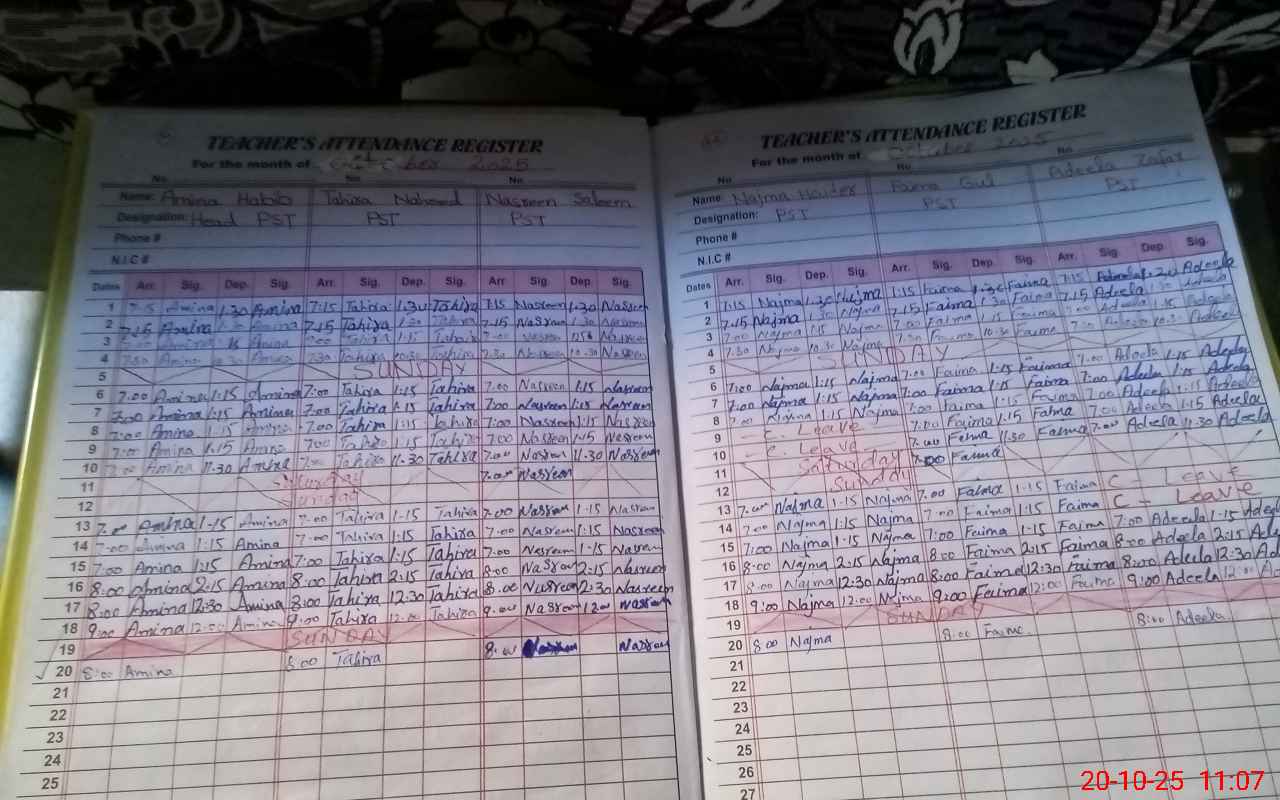 TEACHER'S ATTENDANCE REGISTER
For the month of October 2025
No No No
Name: Amina Habib Tahira Naheed Nasreen Saleem
Designation: Head PST PST PST
Phone #
N.I.C #
Dates Arr. Sig. Dep. Sig. Arr. Sig. Dep. Sig. Arr. Sig. Dep. Sig.
1 7:15 Amina 1:30 Amina 7:15 Tahira 1:30 Tahira 7:15 Nasreen 1:30 Nasreen
2 7:15 Amina 1:30 Amina 7:15 Tahira 1:30 Tahira 7:15 Nasreen 1:30 Nasreen
3 Amina Amina Tahira 1:15 Tahira Nasreen
4 7:30 Amina 10:30 Amina 7:30 Tahira 10:30 Tahira 7:30 Nasreen 10:30 Nasreen
5 SUNDAY
6 7:00 Amina 1:15 Amina 7:00 Tahira 1:15 Tahira 7:00 Nasreen 1:15 Nasreen
7 7:00 Amina 1:15 Amina 7:00 Tahira 1:15 Tahira 7:00 Nasreen 1:15 Nasreen
8 7:00 Amina 1:15 Amina 7:00 Tahira 1:15 Tahira 7:00 Nasreen 1:15 Nasreen
9 7:00 Amina 1:15 Amina 7:00 Tahira 1:15 Tahira 7:00 Nasreen 1:15 Nasreen
10 7:00 Amina 11:30 Amina 7:00 Tahira 11:30 Tahira 7:00 Nasreen 11:30 Nasreen
11 Saturday 7:00 Nasreen
12 Sunday
13 7:00 Amina 1:15 Amina 7:00 Tahira 1:15 Tahira 7:00 Nasreen 1:15 Nasreen
14 7:00 Amina 1:15 Amina 7:00 Tahira 1:15 Tahira 7:00 Nasreen 1:15 Nasreen
15 7:00 Amina 1:15 Amina 7:00 Tahira 1:15 Tahira 7:00 Nasreen 1:15 Nasreen
16 8:00 Amina 2:15 Amina 8:00 Tahira 2:15 Tahira 8:00 Nasreen 2:15 Nasreen
17 8:00 Amina 12:30 Amina 8:00 Tahira 12:30 Tahira 8:00 Nasreen 2:30 Nasreen
18 9:00 Amina 12:00 Amina 9:00 Tahira 12:00 Tahira 9:00 Nasreen 12:00 Nasreen
19 SUNDAY
20 8:00 Amina 8:00 Tahira 8:00 Nasreen
21
22
23
24
25
TEACHER'S ATTENDANCE REGISTER
For the month of October 2025
No No No
Name: Najma Haider Faima Gul Adeela Zafar
Designation: PST PST PST
Phone #
N.I.C #
Dates Arr. Sig. Dep. Sig. Arr. Sig. Dep. Sig. Arr. Sig. Dep. Sig.
1 7:15 Najma 1:30 Najma 7:15 Faima 1:30 Faima 7:15 Adeela 1:30 Adeela
2 7:15 Najma 1:30 Najma 7:15 Faima 1:30 Faima 7:15 Adeela Adeela
3 7:00 Najma 1:15 Najma 7:00 Faima 1:15 Faima 7:00 Adeela 1:15 Adeela
4 7:30 Najma 10:30 Najma 7:30 Faima 10:30 Faima 7:30 Adeela 10:30 Adeela
5 SUNDAY
6 7:00 Najma 1:15 Najma 7:00 Faima 1:15 Faima 7:00 Adeela 1:15 Adeela
7 7:00 Najma 1:15 Najma 7:00 Faima 1:15 Faima 7:00 Adeela 1:15 Adeela
8 7:00 Najma 1:15 Najma 7:00 Faima 1:15 Faima 7:00 Adeela 1:15 Adeela
9 C. Leave 7:00 Faima 1:15 Faima 7:00 Adeela 1:15 Adeela
10 C. Leave 7:00 Faima 11:30 Faima 7:00 Adeela 11:30 Adeela
11 Saturday 7:00 Faima
12 Sunday
13 7:00 Najma 1:15 Najma 7:00 Faima 1:15 Faima C - Leave
14 7:00 Najma 1:15 Najma 7:00 Faima 1:15 Faima C - Leave
15 7:00 Najma 1:15 Najma 7:00 Faima 1:15 Faima 7:00 Adeela 1:15 Adeela
16 8:00 Najma 2:15 Najma 8:00 Faima 2:15 Faima 8:00 Adeela 2:15
17 8:00 Najma 12:30 Najma 8:00 Faima 12:30 Faima 8:00 Adeela 12:30
18 9:00 Najma 12:00 Najma 9:00 Faima 12:00 Faima 9:00 Adeela 12:00
19 SUNDAY
20 8:00 Najma 8:00 Faima 8:00 Adeela
21
22
23
24
25
26
27
20-10-25 11:07